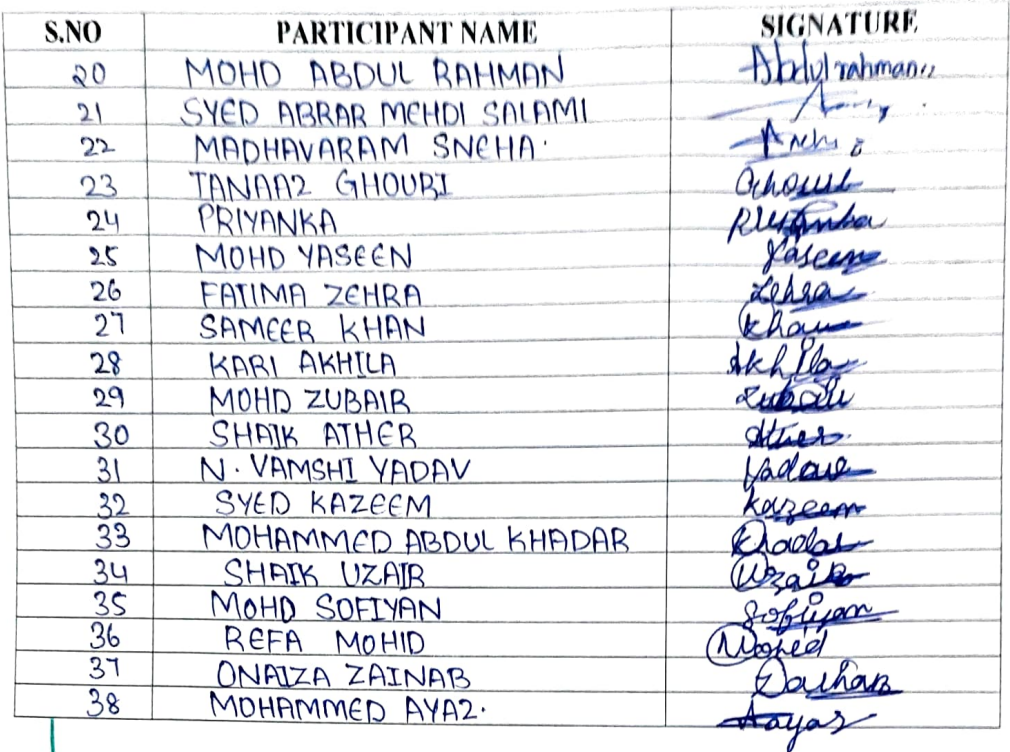 S.NO PARTICIPANT NAME SIGNATURE
20 MOHD ABDUL RAHMAN Abdulrahman
21 SYED ABRAR MEHDI SALAMI
22 MADHAVARAM SNEHA.
23 TANAAZ GHOURI Ghouri
24 PRIYANKA Priyanka
25 MOHD YASEEN Yaseen
26 FATIMA ZEHRA Zehra
27 SAMEER KHAN Khan
28 KARI AKHILA Akhila
29 MOHD ZUBAIR Zubair
30 SHAIK ATHER Ather.
31 N. VAMSHI YADAV Yadav
32 SYED KAZEEM Kazeem
33 MOHAMMED ABDUL KHADAR Khadar
34 SHAIK UZAIR Uzair
35 MOHD SOFIYAN Sofiyan
36 REFA MOHID Mohid
37 ONAIZA ZAINAB
38 MOHAMMED AYAZ. Aayaz